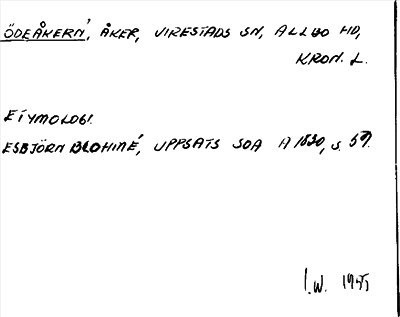 ÖDEÅKERN, ÅKER, VIRESTADS SN, ALLBO HD,
KRON. L.
ETYMOLOGI.
ESBJÖRN BLOHMÉ, UPPSATS SOA A 1830, S. 57.
I.W. 1955